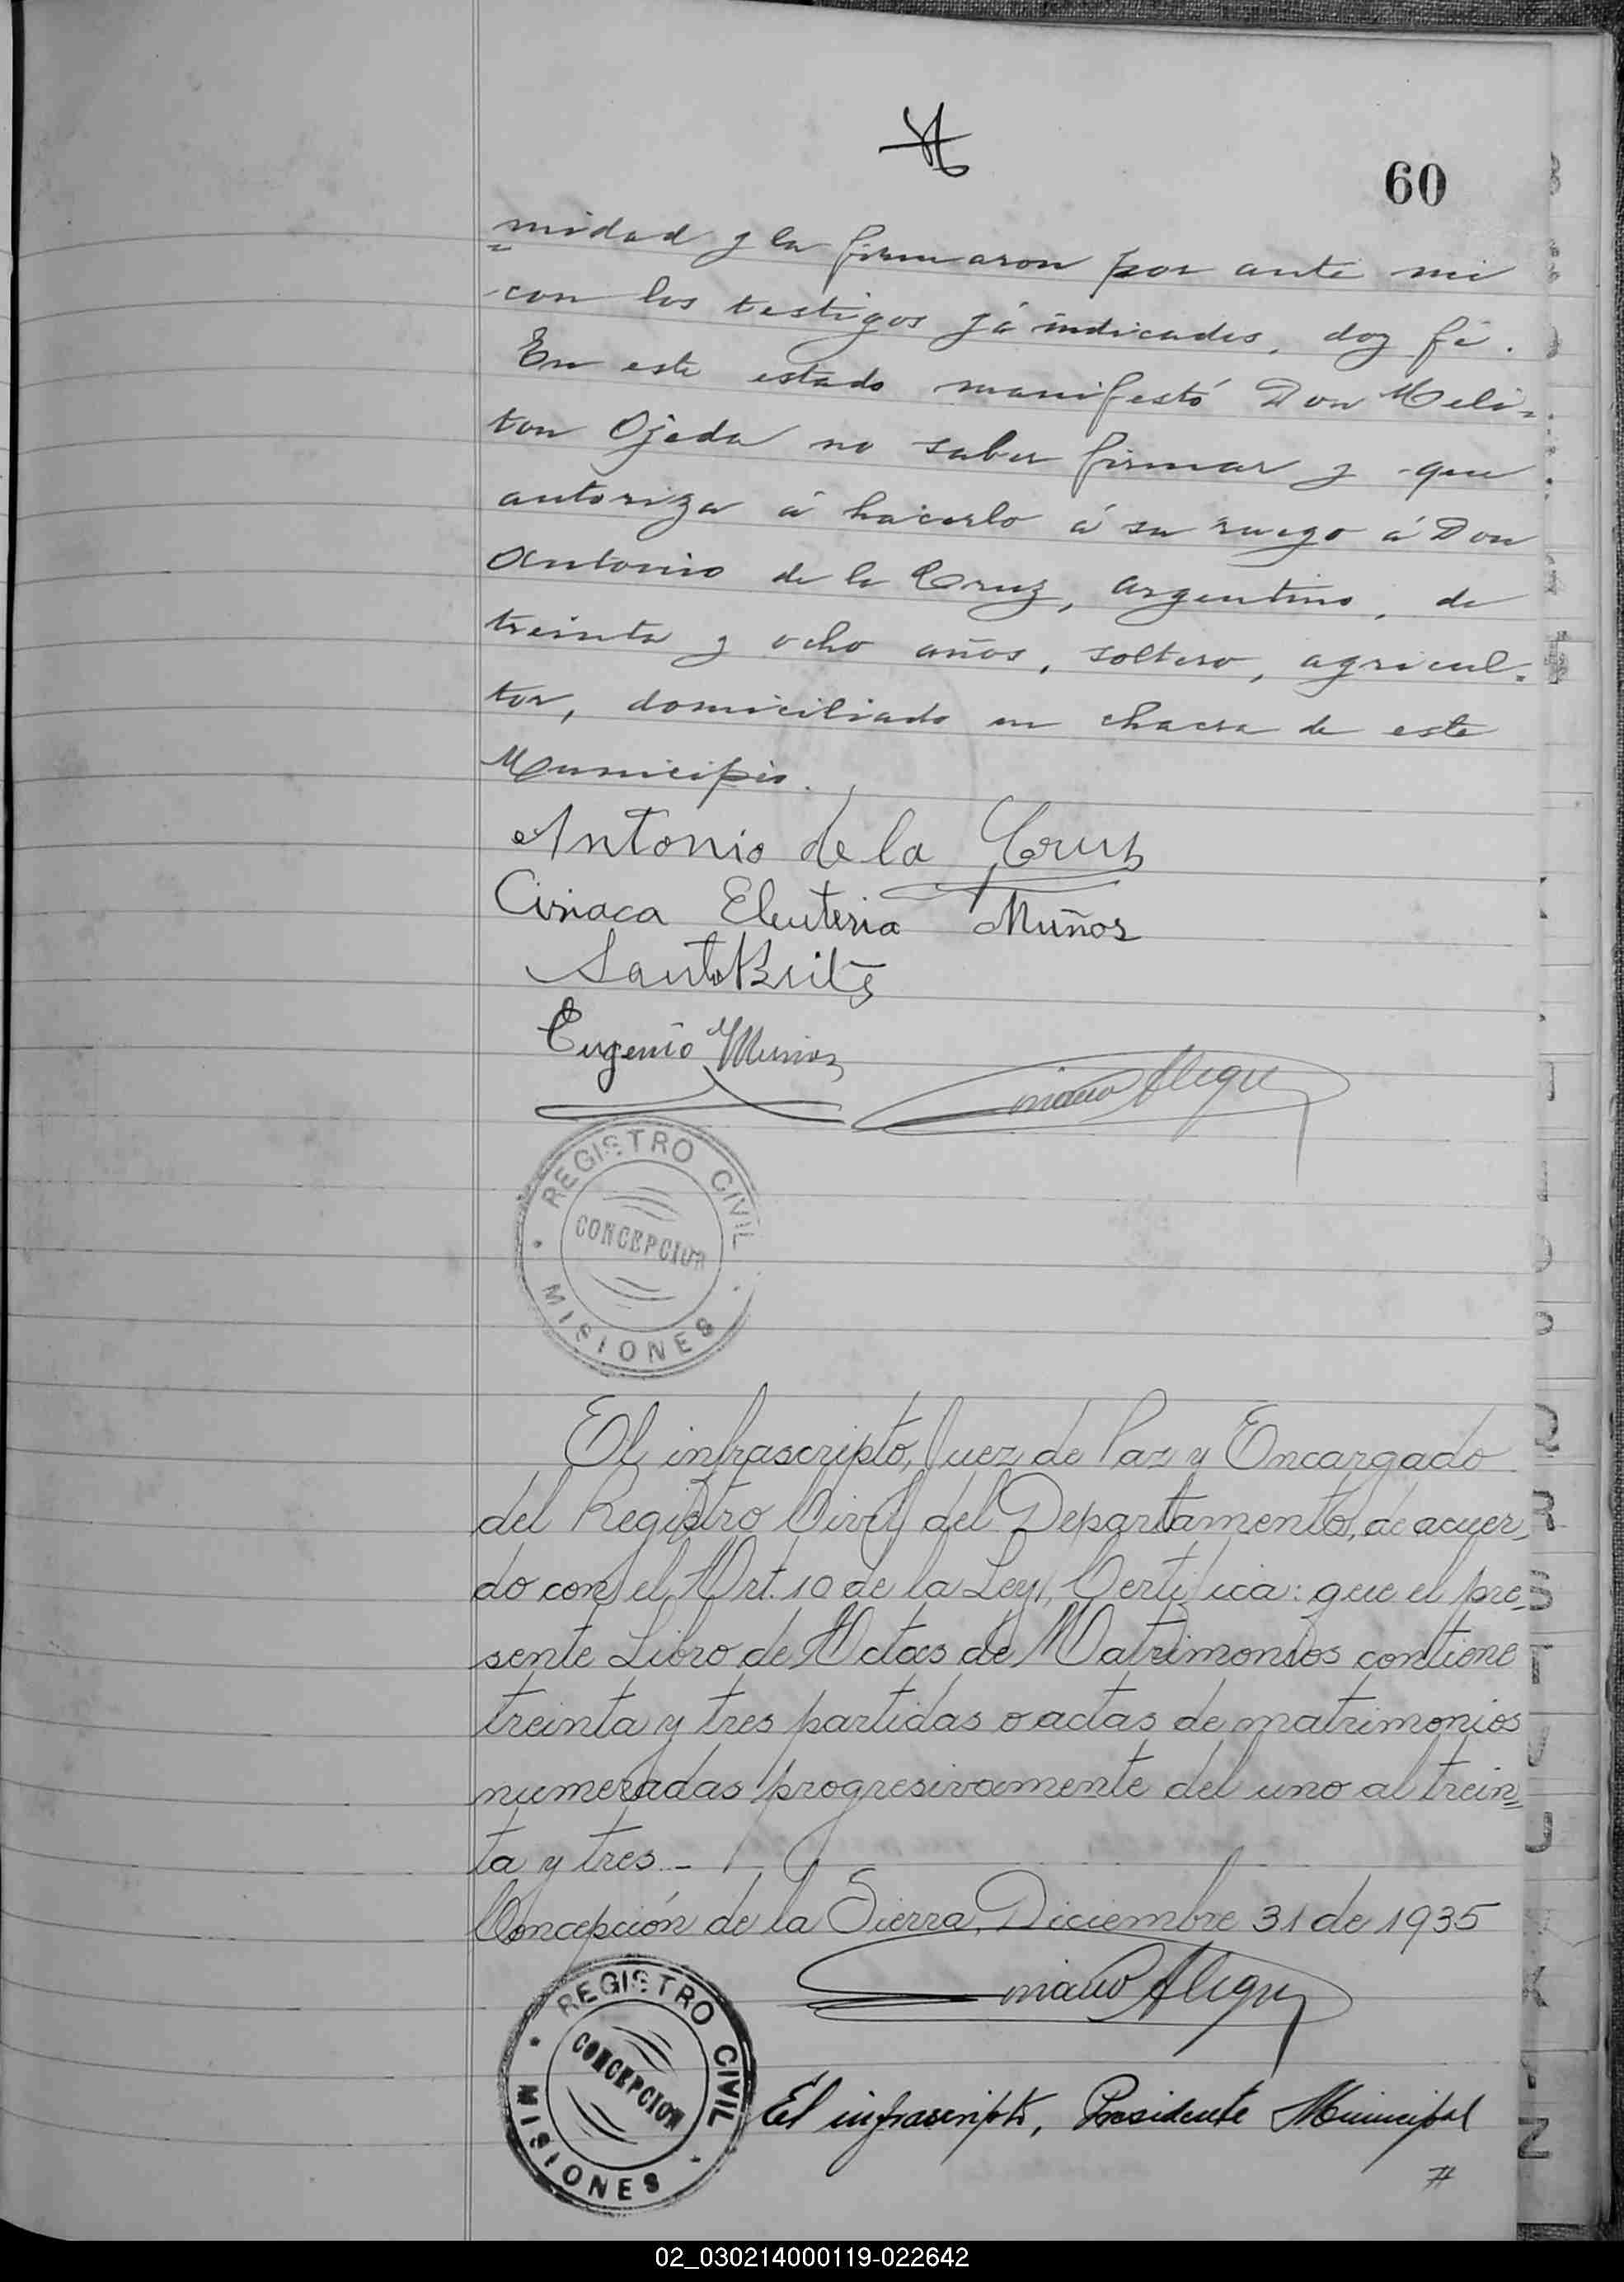 60
midad y la firmaron por ante mi
con los testigos já indicados, doy fé.
En este estado manifestó Don Meli=
ton Ojeda no saber firmar y que
autoriza á hacerlo á su ruego á Don
Antonio de la Cruz, argentino, de
treinta y ocho años, soltero, agricul=
tor, domiciliado en chacra de este
Municipio.
Antonio de la Cruz
Ciriaca Eleuteria Muñoz
Santo Brites
Eugenio Munioz
REGISTRO CIVIL
CONCEPCION
MISIONES
El infrascripto, Juez de Paz y Encargado
del Registro Civil del Departamento, de acuer-
do con el Art. 10 de la Ley, Certifica: que el pre-
sente Libro de Actas de Matrimonios contiene
treinta y tres partidas o actas de matrimonios
numeradas progresivamente del uno al trein=
ta y tres.-
Concepción de la Sierra, Diciembre 31 de 1935
REGISTRO CIVIL
CONCEPCION
MISIONES
El infrascripto, Presidente Municipal
#
02_030214000119-022642